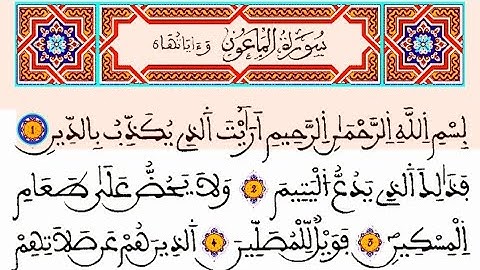 سُورَةُ الْمَاعُونِ
بِسْمِ اِللَّهِ اِلرَّحْمَٰنِ اِلرَّحِيمِ أَرَٰٓيْتَ اَلذِے يُكَذِّبُ بِالدِّينِ 1
فَذَٰلِكَ اَلذِے يَدُعُّ اُلْيَتِيمَ 2 وَلَا يَحُضُّ عَلَىٰ طَعَامِ
اِلْمِسْكِينِ 3 فَوَيْلٌ لِّلْمُصَلِّينَ 4 اَلذِينَ هُمْ عَن صَلَاتِهِمْ